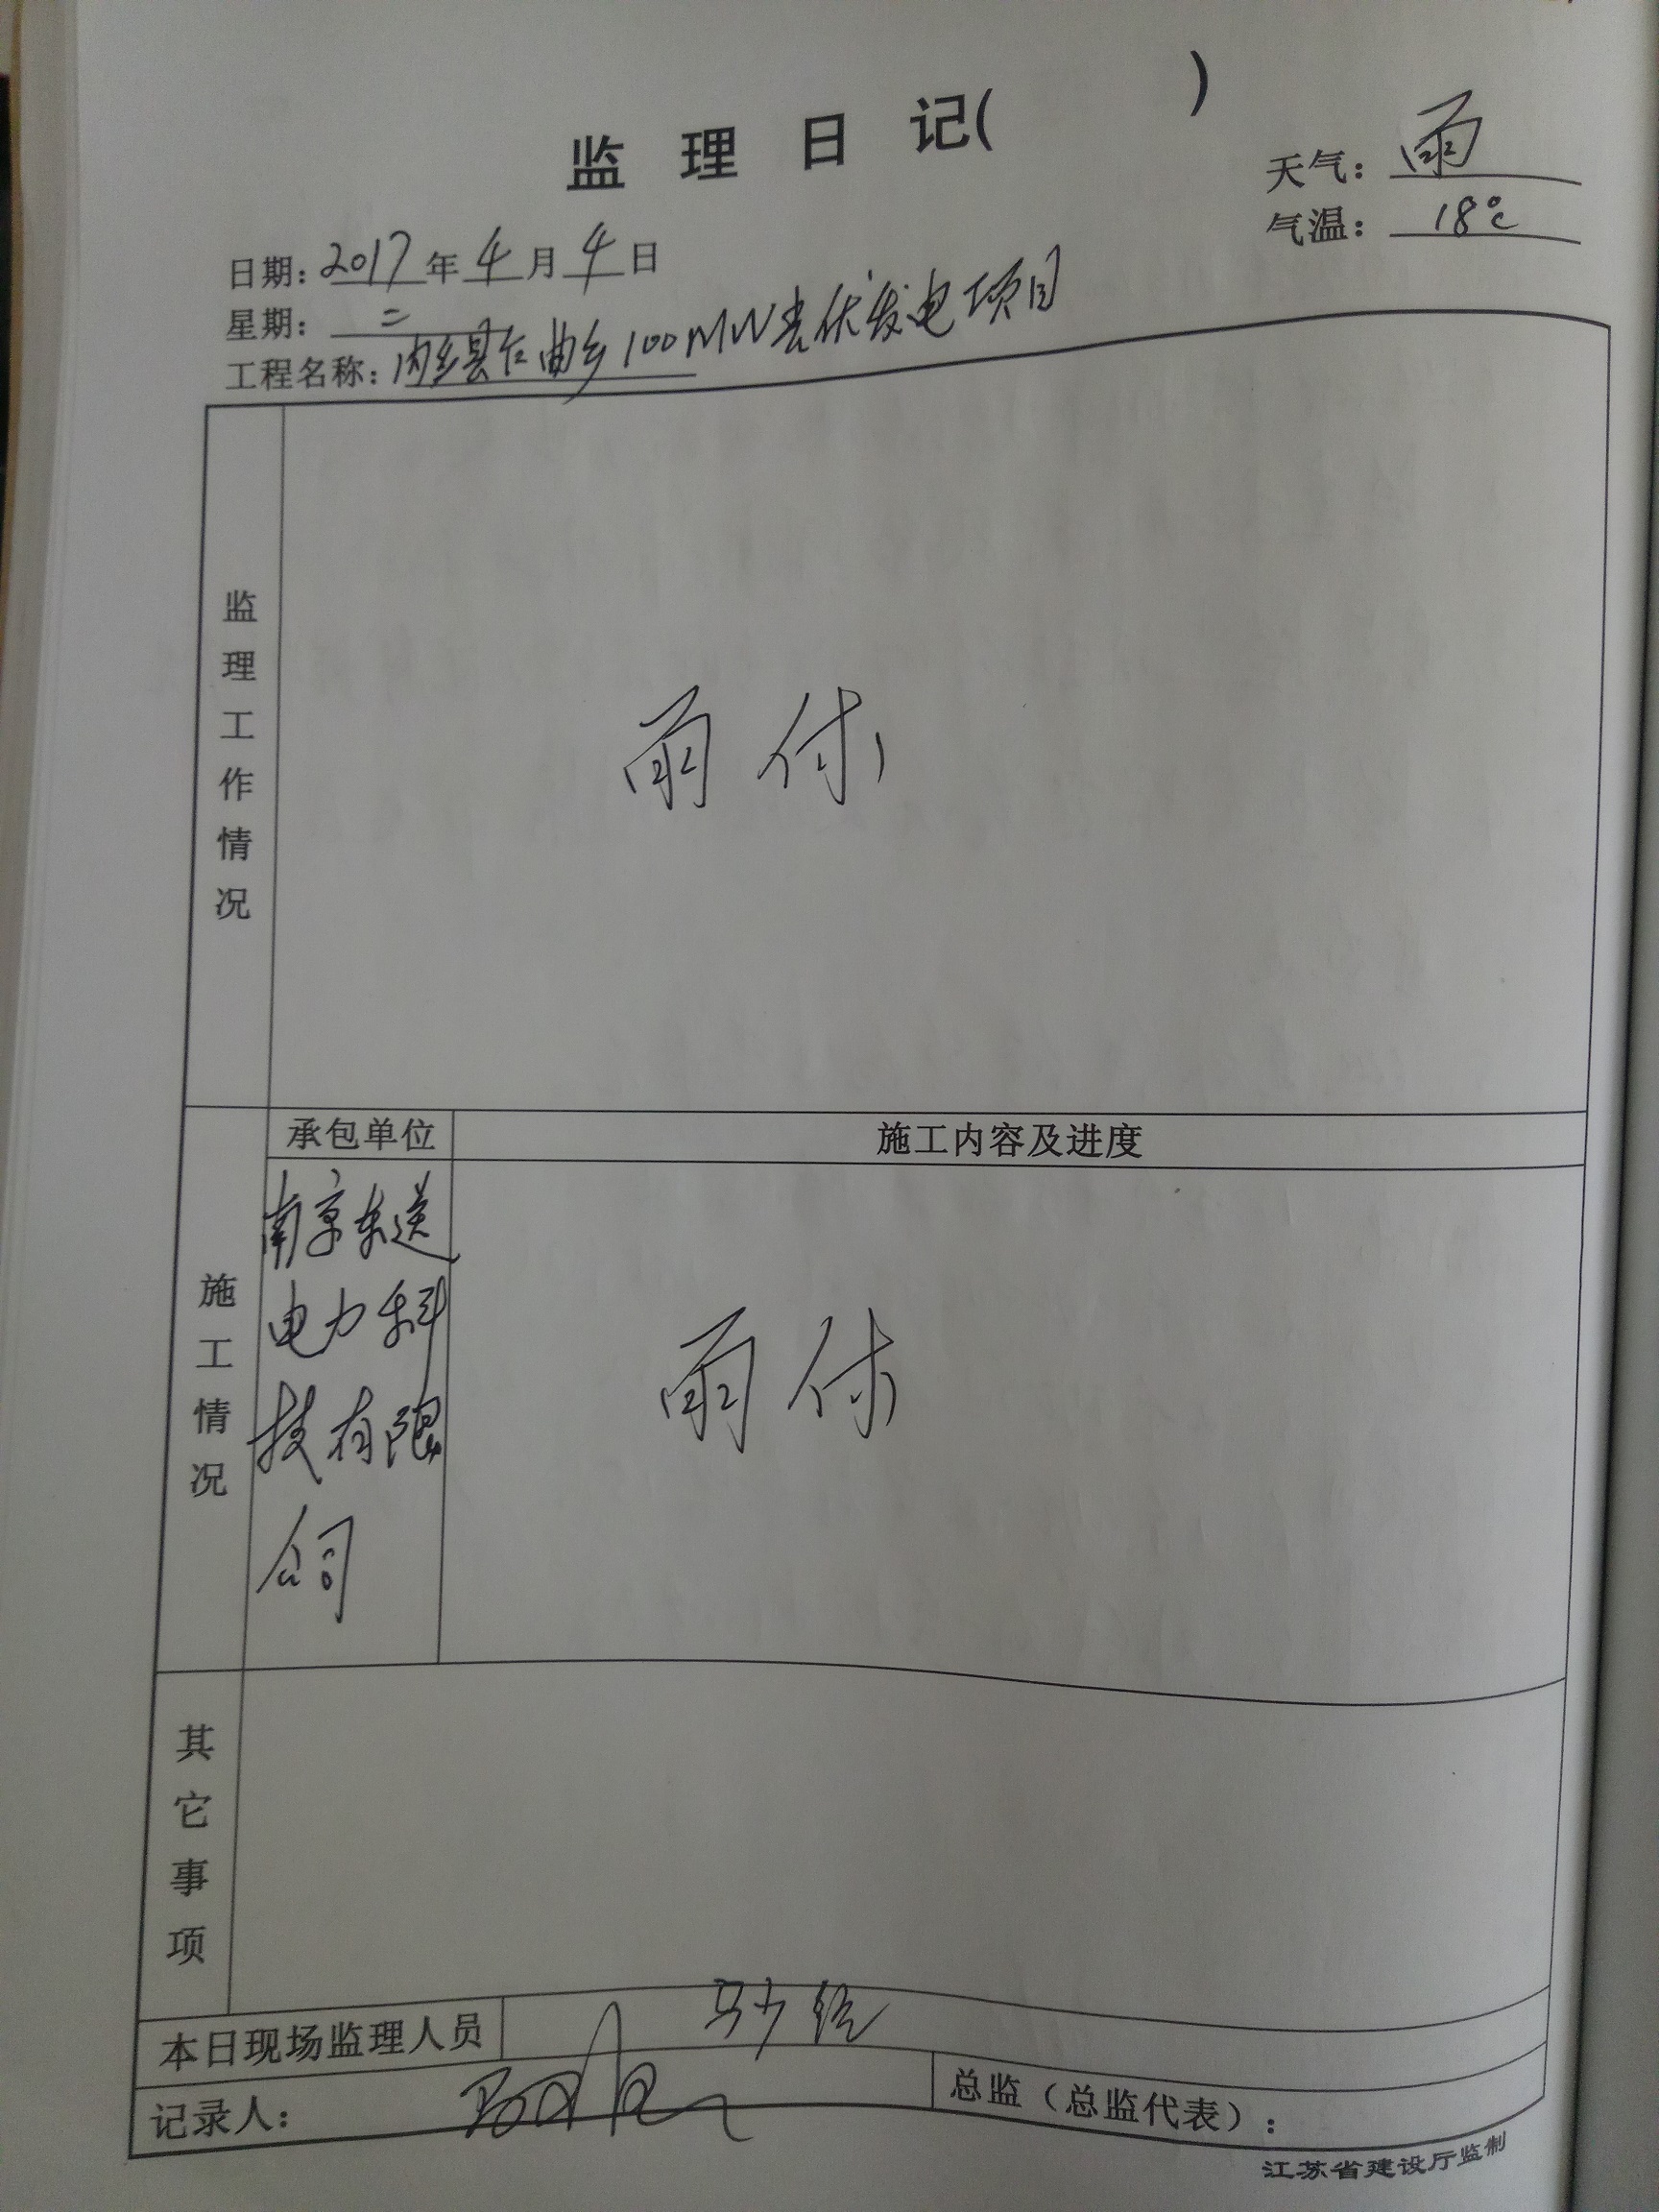 监理日记(          )
天气：雨
气温：18℃
日期：2017年4月4日
星期：二
工程名称：内乡县仁曲乡100MW光伏发电项目
监理工作情况
雨休
施工情况
承包单位
施工内容及进度
南京东送
电力科
技有限
公司
雨休
其它事项
本日现场监理人员
记录人：
总监（总监代表）：
江苏省建设厅监制